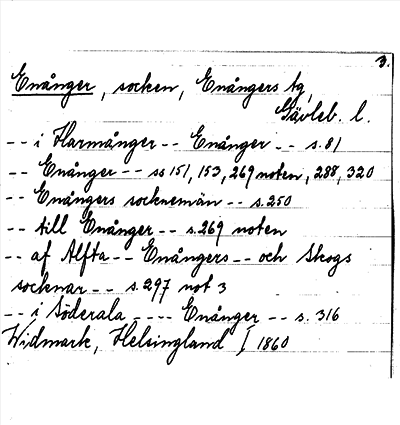 3.
Enånger, socken, Enångers tg,
Gävleb. l.
-- i Harmånger -- Enånger -- s. 81
-- Enånger -- ss 151, 153, 269 noten, 288, 320
-- Enångers socknemän -- s. 250
-- till Enånger -- s. 269 noten
-- af Alfta -- Enångers -- och Skogs
socknar -- s. 297 not 3
-- i Söderala ---- Enånger -- s. 316
Widmark, Helsingland I 1860